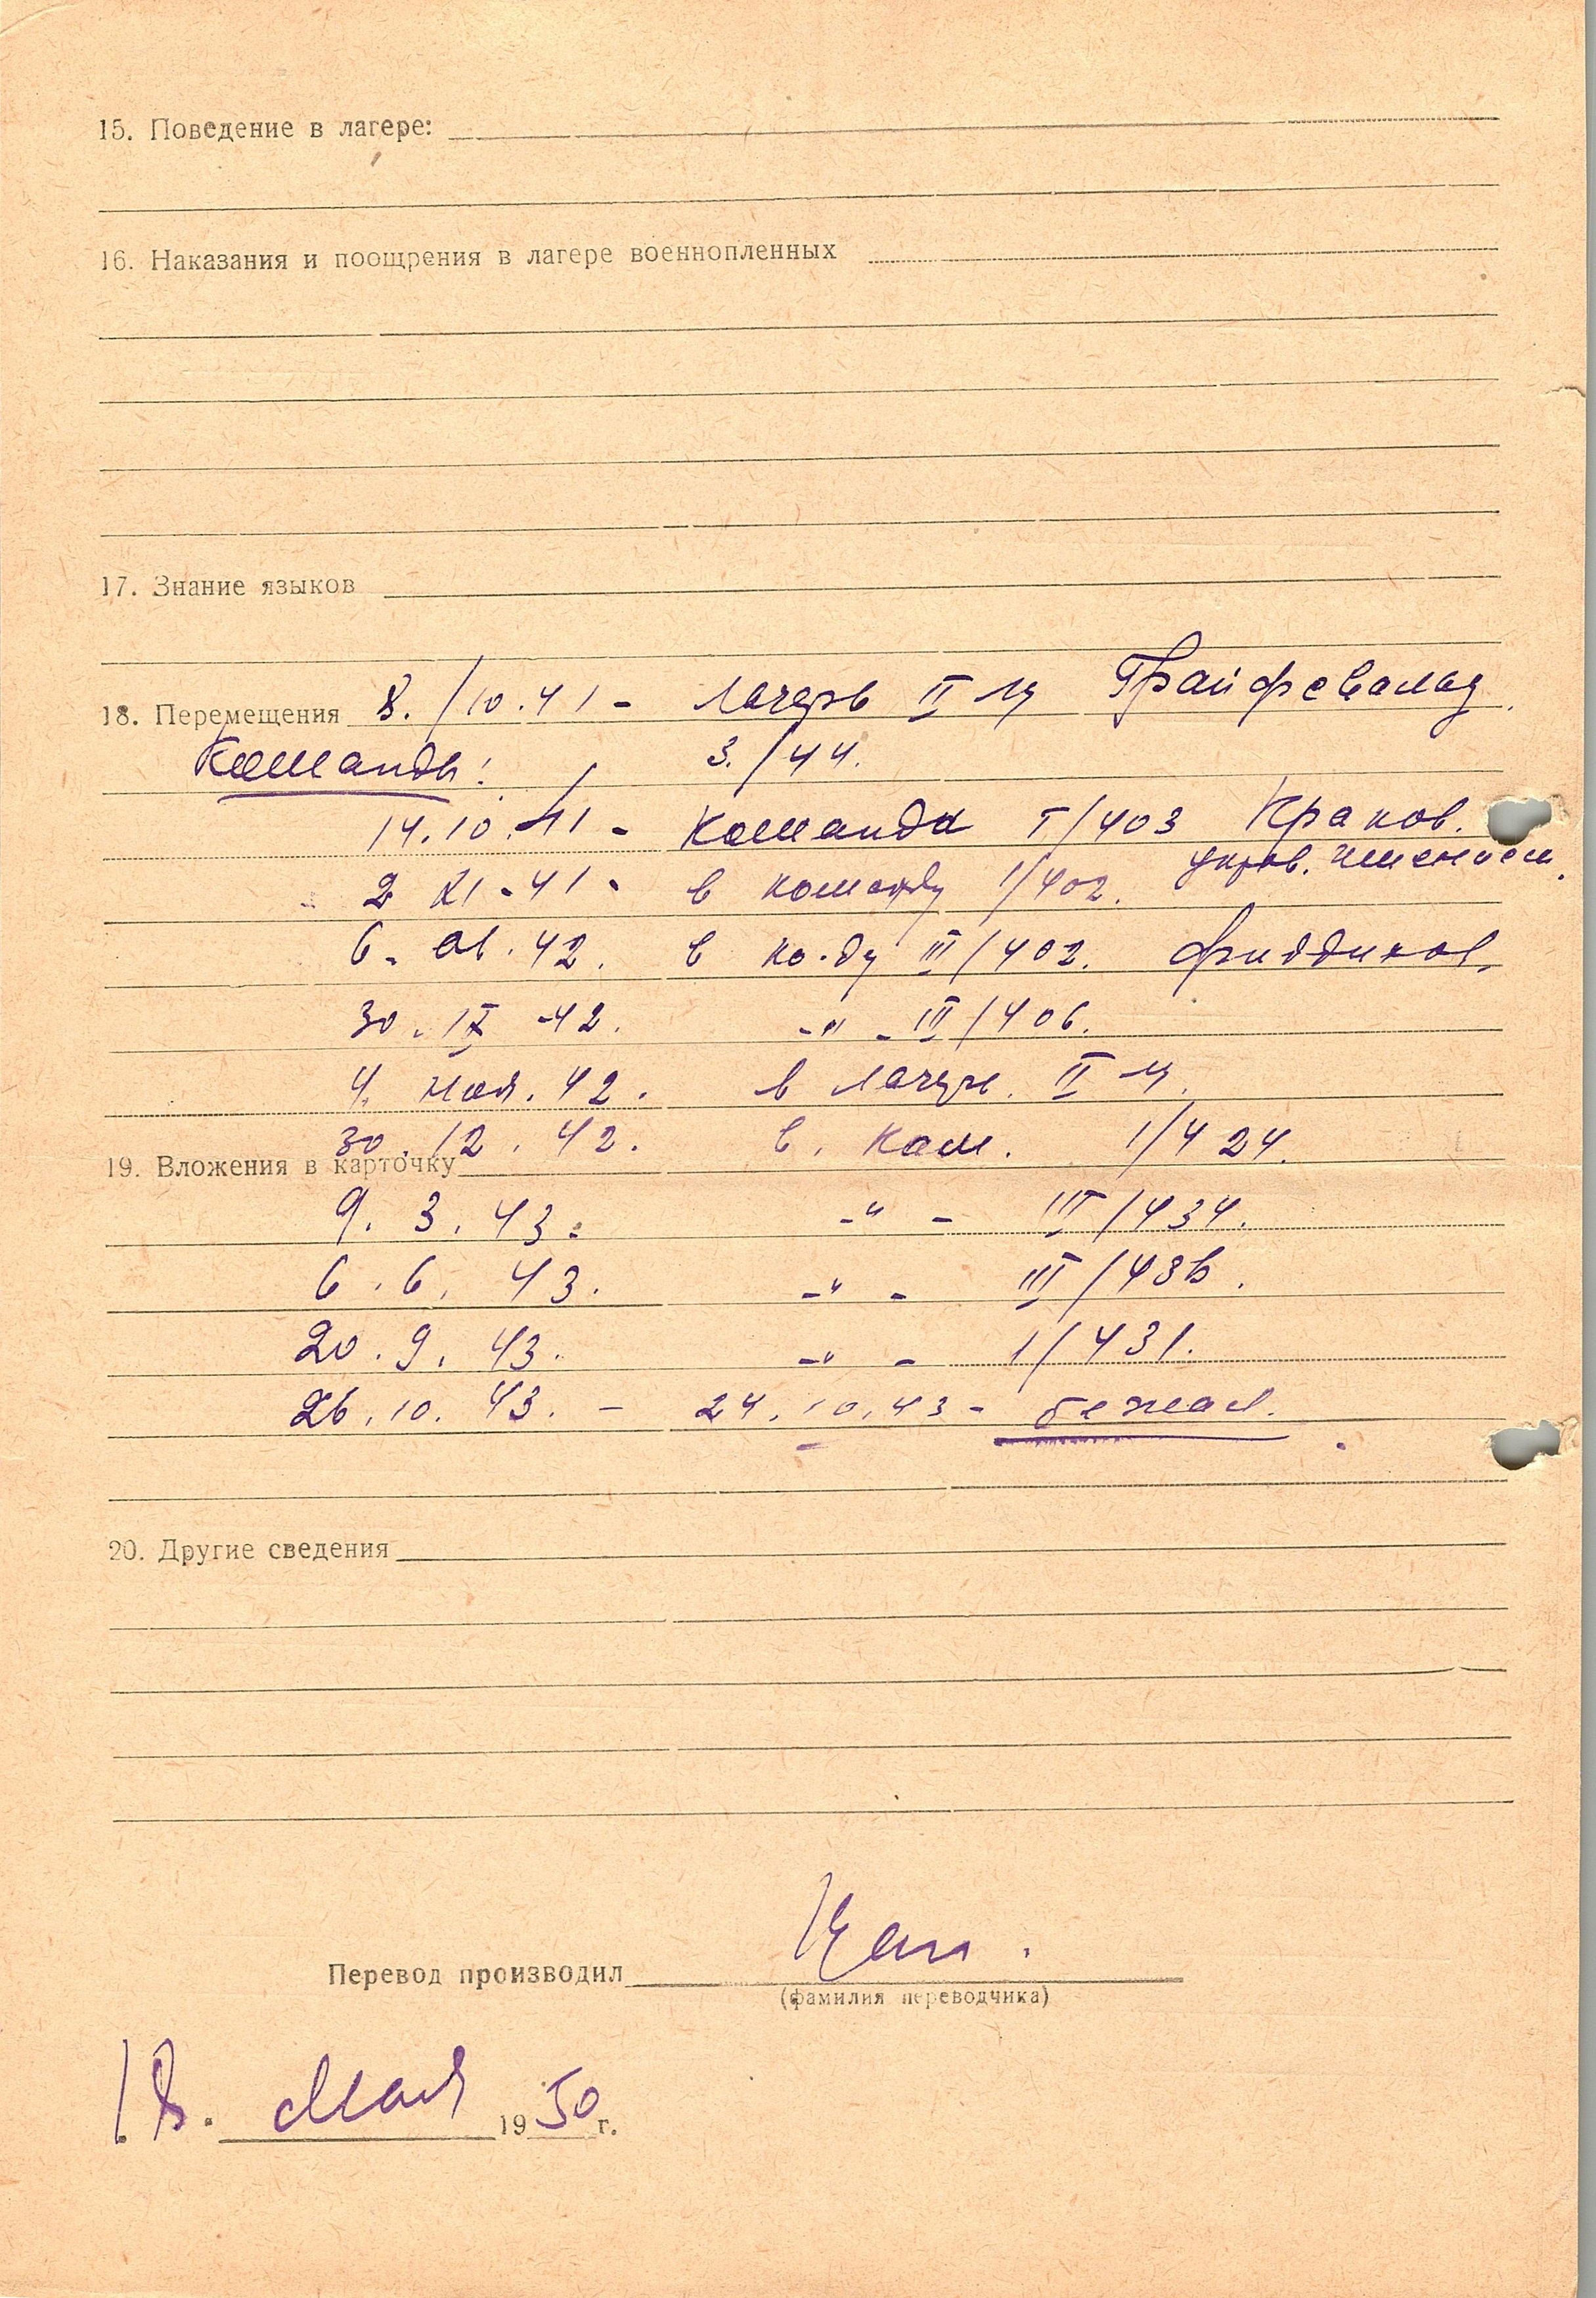 15. Поведение в лагере:
16. Наказания и поощрения в лагере военнопленных
17. Знание языков
18. Перемещения 8./10.41 - Лагерь II Ц Грайфсвальд.
Команды: 3./44.
14.10.41 - Команда I/403 Краков.
управ. имением.
2 XI-41 - в команду 1/402.
6. ав. 42. в ко-ду III/402.
30. IX -42. -"- III/406.
4. ноя. 42. в лагерь. II Ц.
30.12.42. в. ком. 1/424.
19. Вложения в карточку
9. 3. 43. -"- III/434.
6. 6. 43. -"- III/43
20. 9. 43. -"- 1/431.
26.10.43. - 24.10.43 - бежал.
20. Другие сведения
Перевод производил
(фамилия переводчика)
18. Мая 1950 г.